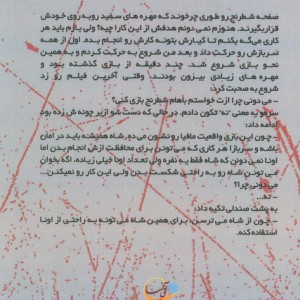 صفحه شطرنج رو طوری چرخوند که مهره های سفید روبه روی خودش
قرار بگیرند. هنوزم نمی دونم هدفش از این کارا چیه؟ ولی بازم باید هر
کاری می گه بکنم تا کیارش بتونه کارش رو انجام بده. اول از همه
سربازش رو حرکت داد و بعد من شروع به حرکت کردم و به همین
نحو بازی شروع شد. چند دقیقه از بازی گذشته بود و
مهره های زیادی بیرون بودند. وقتی آخرین فیلم رو زد
شروع به صحبت کرد:
– می دونی چرا ازت خواستم باهام شطرنج بازی کنی؟
سرمو به معنی "نه" تکون دادم. در حالی که دست شو از زیر چونه ش زده بود
ادامه داد:
– چون این بازی واقعیت مافیا رو نشون می ده. شاه همیشه باید در امان
باشه و سربازا هر کاری که می تونن برای محافظت ازش انجام بدن اما
اونا نمی دونن که شاه فقط یه نفره ولی تعداد اونا خیلی زیاده. اگه بخوان
می تونن شاه رو به راحتی شکست بدن ولی این کار رو نمیکنن...
می دونی چرا؟
– نه...
به پشت صندلی تکیه داد:
– چون از شاه می ترسن. برای همین شاه می تونه به راحتی از اونا
استفاده کنه.